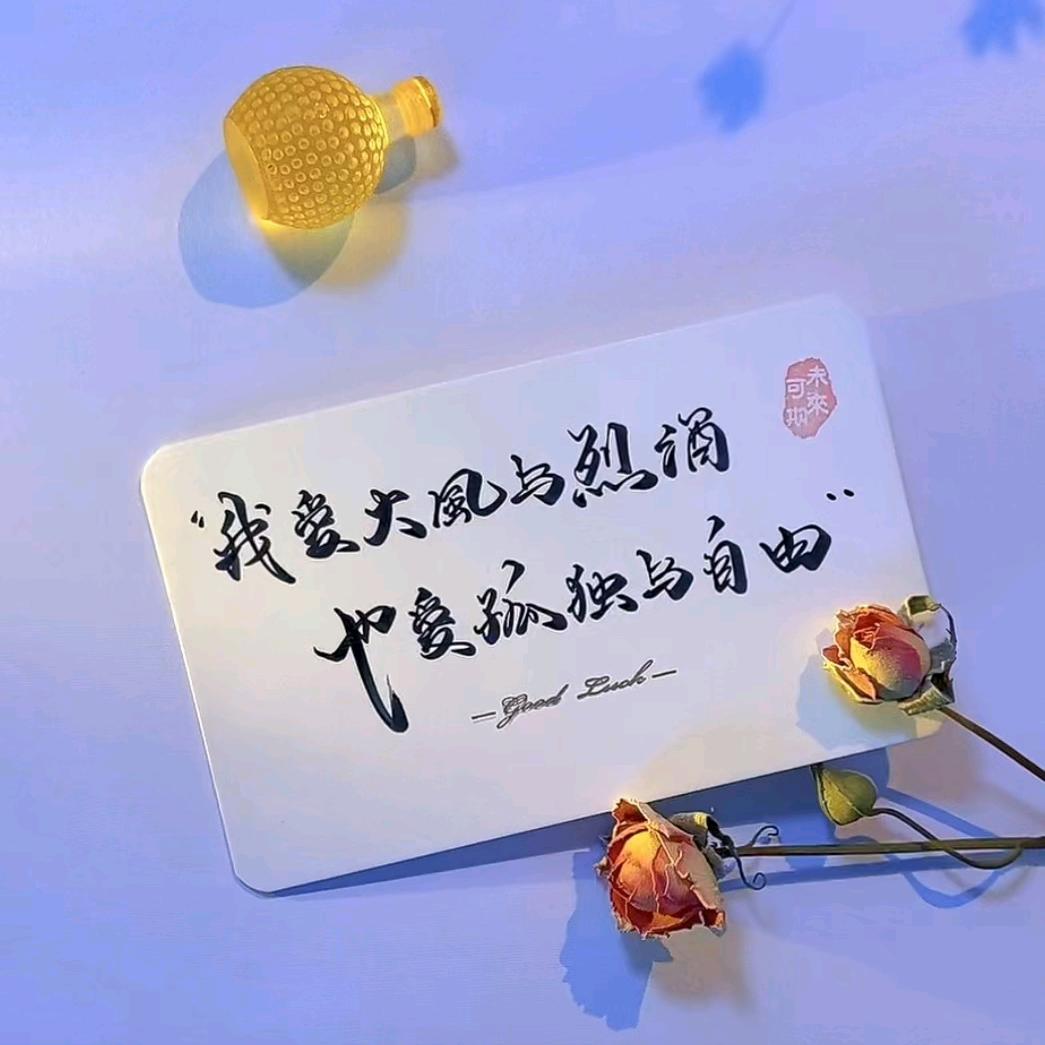 “我爱大風与烈酒
也爱孤独与自由”
— Good Luck —
未來
可期